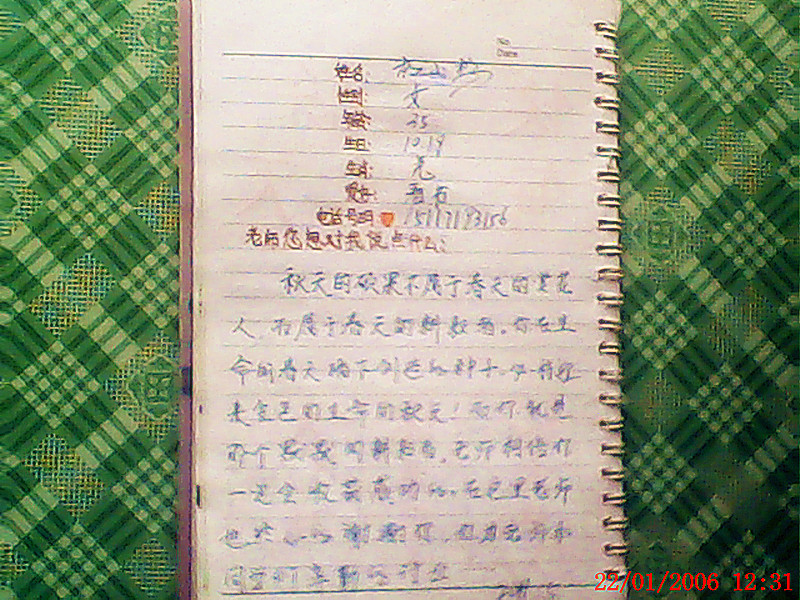 No
Date
姓名:
性别: 女
年龄: 35
生日: 10.19
生肖:
爱好: 看书
电话号码 15117193156
老师您想对我说点什么:
秋天的硕果不属于春天的赏花
人,而属于春天的耕耘者,你在生
命的春天播下创造的种子,必将迎
来金色的生命的秋天!而你就是
那个默默的耕耘者,老师相信你
一定会收获真的的。在这里老师
也衷心的谢谢你,你为老师和
同学们辛勤的付出
22/01/2006 12:31